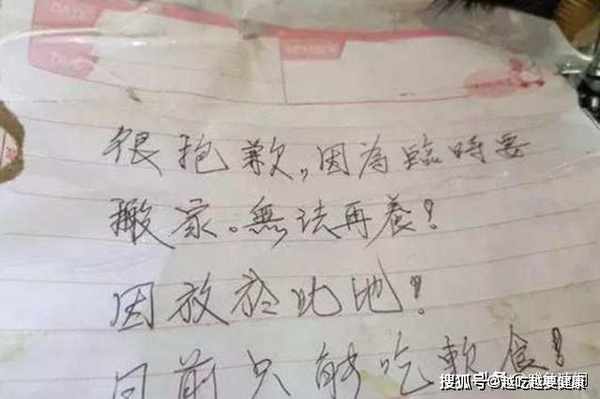 很抱歉,因為臨時要
搬家。無法再養!
因放於此地!
目前只能吃軟食!
搜狐号@越吃越要健康